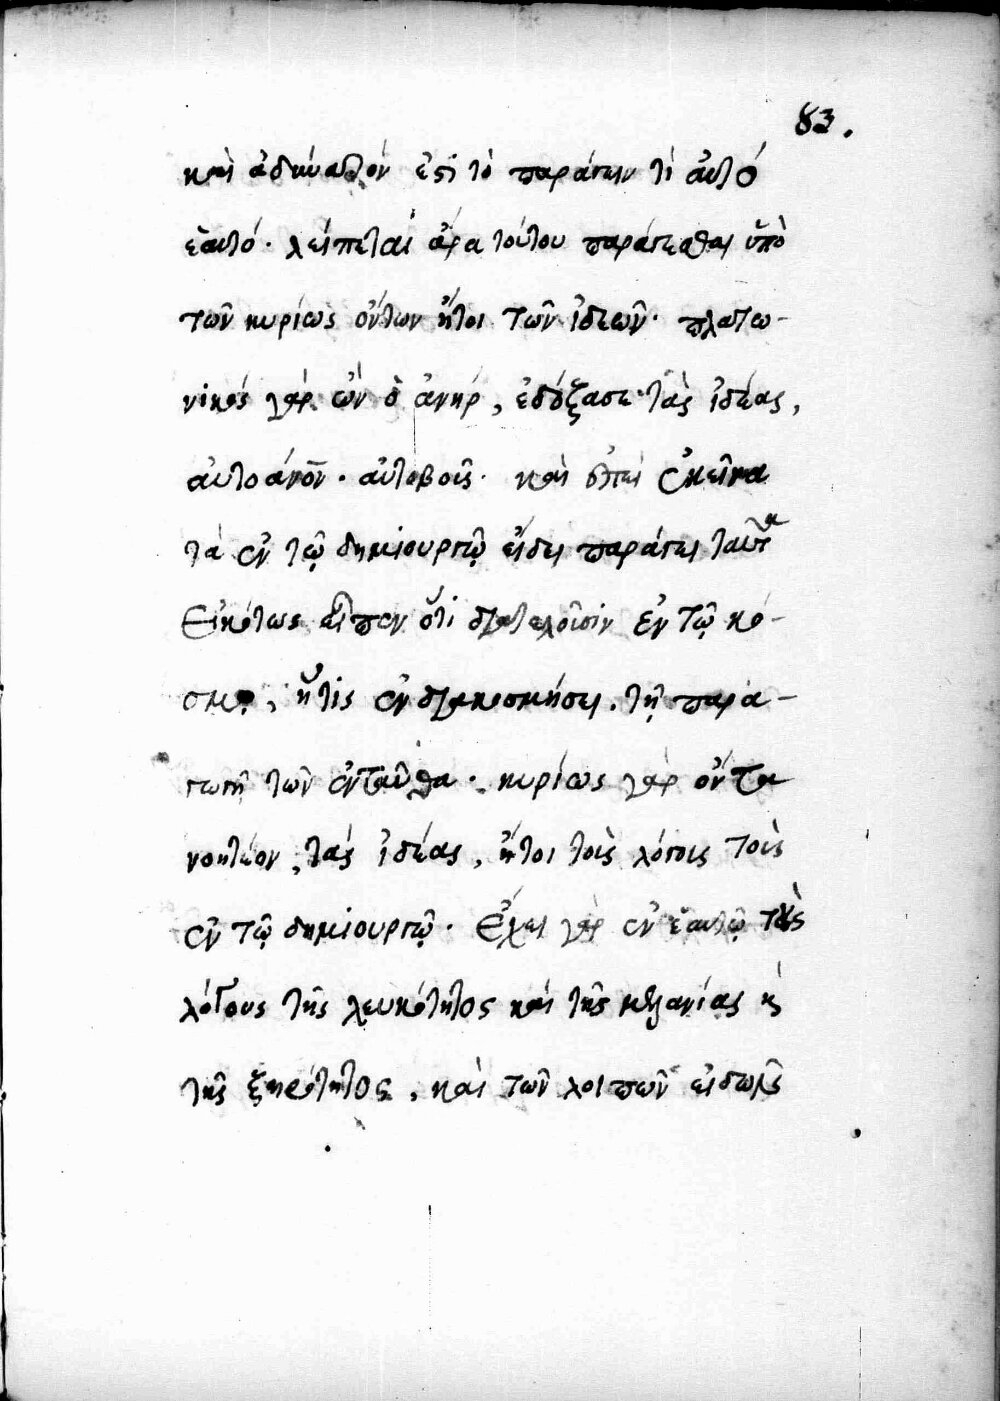 83.
καὶ ἀδύνατόν ἐστι τὸ παράγειν τὶ αὐτό
ἑαυτό· λείπεται ἄρα τούτου παράγεσθαι ὑπὸ
τῶν κυρίως ὄντων ἤτοι τῶν ἰδεῶν· πλατω-
νικός γάρ ὢν ὁ ἀνήρ, ἐδόξασε τὰς ἰδέας,
αὐτοάνον· αὐτοβοῦς· καὶ ἐκεῖνα
τὰ ἐν τῷ δημιουργῷ εἴδει παράγει
Εἰκότως εἶπεν ὅτι ἐν τῷ κό-
σμῳ, ἥτις ἐν διακοσμήσει. τῇ παρα-
γωγῇ τῶν ἐνταῦθα· κυρίως γάρ ὄντα
νοητέον, τάς ἰδέας, ἤτοι τοῖς λόγοις τοῖς
ἐν τῷ δημιουργῷ· Ἔχει γὰρ ἐν ἑαυτῷ τοὺς
λόγους τῆς λευκότητος καὶ τῆς μελανίας κ
τῆς ξηρότητος, καὶ τῶν λοιπῶν